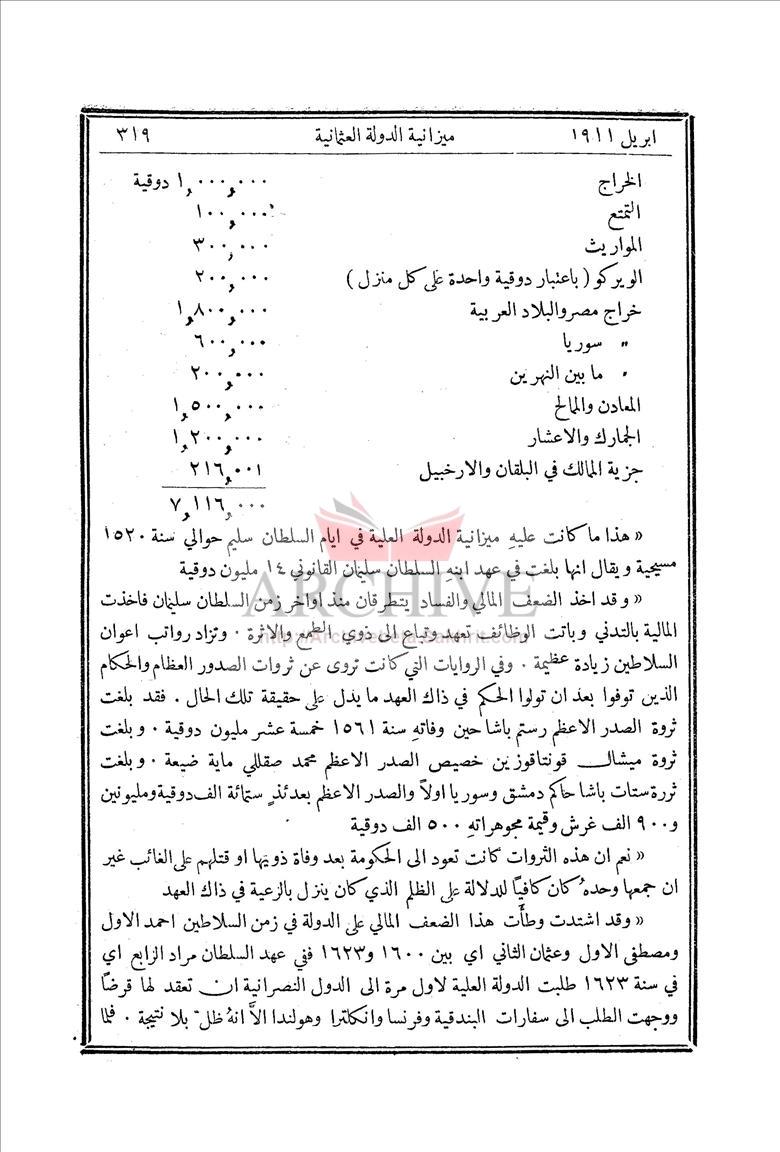 ابريل ١٩١١ ميزانية الدولة العثمانية ٣١٩
الخراج ١,٠٠٠,٠٠٠ دوقية
التمتع ١٠٠,٠٠٠
المواريث ٣٠٠,٠٠٠
الويركو ( باعتبار دوقية واحدة على كل منزل ) ٢٠٠,٠٠٠
خراج مصر والبلاد العربية ١,٨٠٠,٠٠٠
" سوريا ٦٠٠,٠٠٠
" ما بين النهرين ٢٠٠,٠٠٠
المعادن والمالح ١,٥٠٠,٠٠٠
الجمارك والاعشار ١,٢٠٠,٠٠٠
جزية المالك في البلقان والارخبيل ٢١٦,٠٠١
٧,١١٦,٠٠٠
« هذا ما كانت عليهِ ميزانية الدولة العلية في ايام السلطان سليم حوالي سنة ١٥٢٠
مسيحية ويقال انها بلغت في عهد ابنه السلطان سليمان القانوني ١٤ مليون دوقية
« وقد اخذ الضعف المالي والفساد يتطرقان منذ اواخر زمن السلطان سليمان فاخذت
المالية بالتدني وباتت الوظائف تعهد وتباع الى ذوي الطمع والاثرة . وتزاد رواتب اعوان
السلاطين زيادة عظيمة . وفي الروايات التي كانت تروى عن ثروات الصدور العظام والحكام
الذين توفوا بعد ان تولوا الحكم في ذاك العهد ما يدل على حقيقة تلك الحال . فقد بلغت
ثروة الصدر الاعظم رستم باشا حين وفاتهِ سنة ١٥٦١ خمسة عشر مليون دوقية . وبلغت
ثروة ميشال قونتاقوزين خصيص الصدر الاعظم محمد صقللي ماية ضيعة . وبلغت
ثررة ستات باشا حاكم دمشق وسوريا اولاً والصدر الاعظم بعدئذٍ ستمائة الف دوقية ومليونين
و٩٠٠ الف غرش وقيمة مجوهراتهِ ٥٠٠ الف دوقية
« نعم ان هذه الثروات كانت تعود الى الحكومة بعد وفاة ذويها او قتلهم على الغائب غير
ان جمعها وحدهُ كان كافيًا للدلالة على الظلم الذي كان ينزل بالرعية في ذاك العهد
« وقد اشتدت وطأَت هذا الضعف المالي على الدولة في زمن السلاطين احمد الاول
ومصطفى الاول وعثمان الثاني اي بين ١٦٠٠ و١٦٢٣ ففي عهد السلطان مراد الرابع اي
في سنة ١٦٢٣ طلبت الدولة العلية لاول مرة الى الدول النصرانية ان تعقد لها قرضًا
ووجهت الطلب الى سفارات البندقية وفرنسا وانكلترا وهولندا الاَّ انهُ ظل بلا نتيجة . فلما
ARCHIVE